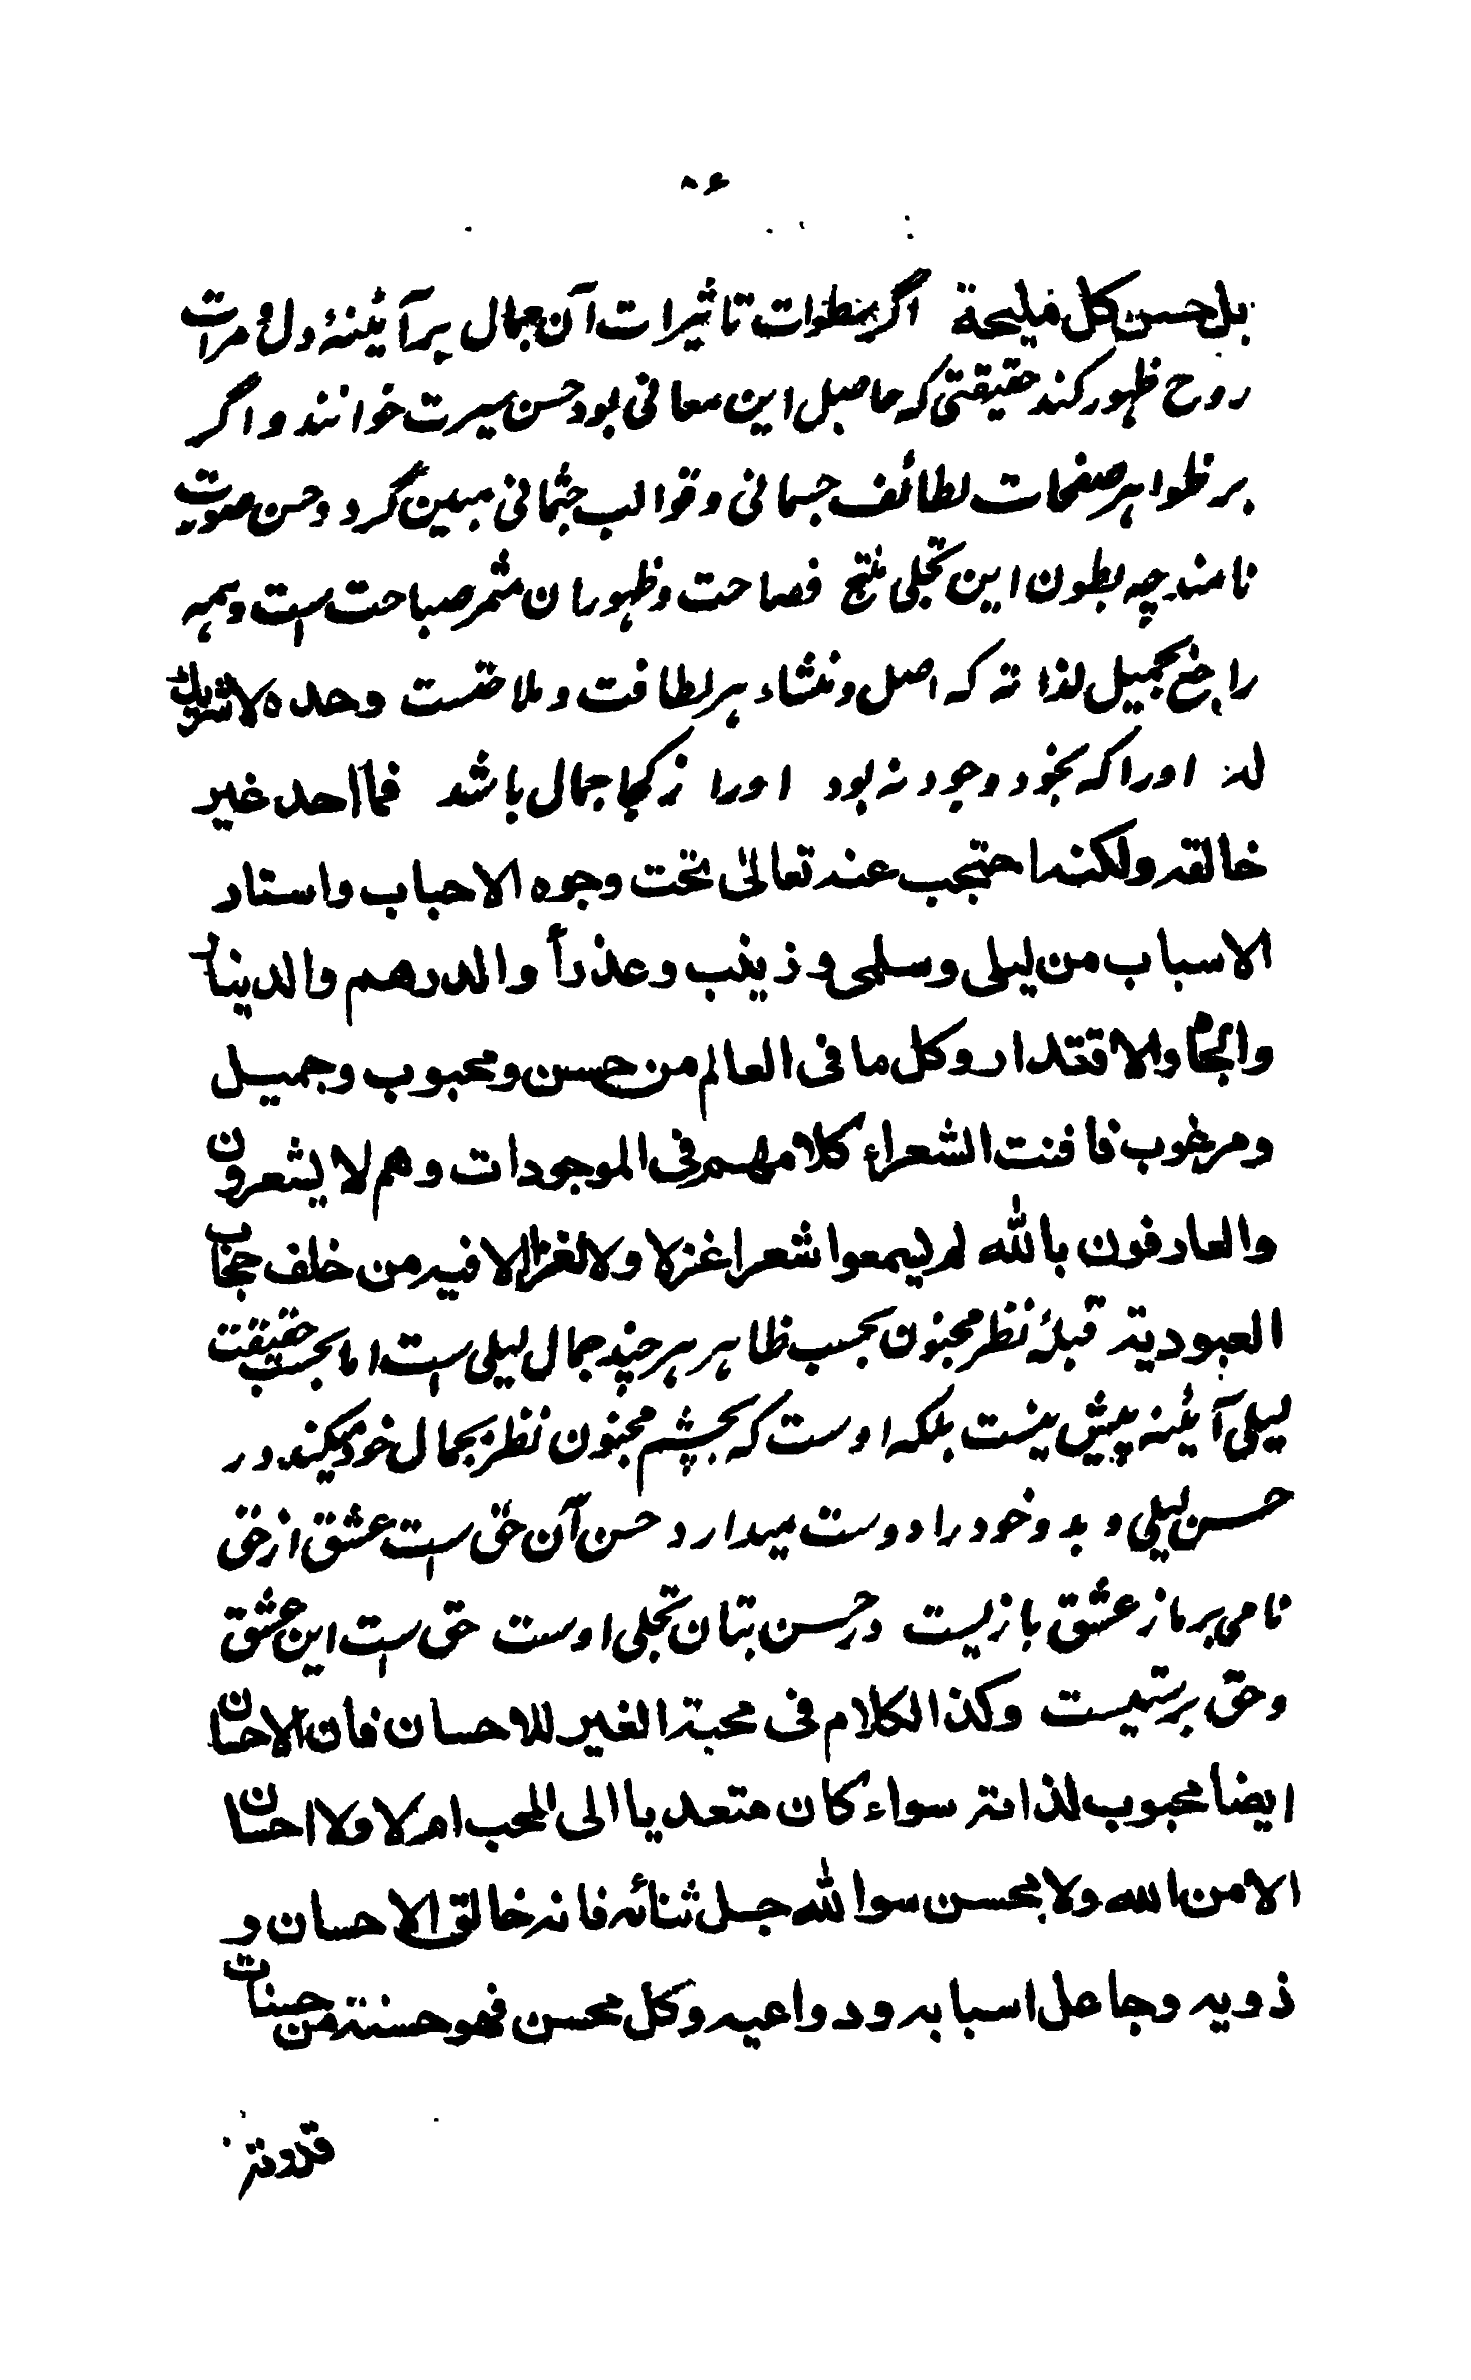 ۸۶
بل حسن كل مليحة اگر بنطوات تاثیرات آن جمال بر آئینهٔ دل و مرات
روح ظهور کند حقیقتی که حاصل این معانی بود حسن سیرت خوانند و اگر
بر ظواهر صفحات لطائف جسمانی و قوالب جثمانی مبین گردد حسن صورت
نامند چه بطون این تجلی منتج فصاحت و ظهور ان مثمر صباحت ست و همه
راجع بجمیل لذاته که اصل و منشاء هر لطافت و ملاحتست وحده لاشریك
له اورا که بخود وجود نه بود اورا ز کجا جمال باشد فما احد غير
خالقه ولكنه احتجب عنه تعالىٰ تحت وجوه الاحباب واستار
الاسباب من ليلى وسلمى وزينب وعذرأ والدرهم والدينار
والجاه والاقتدار وكل ما فى العالم من حسن ومحبوب وجميل
ومرغوب فافنت الشعراء كلامهم فى الموجودات وهم لا يشعرون
والعارفون بالله لم يسمعوا شعرا غزلا ولا لغزا الا فيه من خلف حجاب
العبودية قبلهٔ نظر مجنون بحسب ظاهر هر چند جمال لیلی ست اما بحسب حقیقت
لیلی آئینه پیش نیست بلکه اوست که بچشم مجنون نظر بجمال خود میکند در
حسن لیلی و بدو خود را دوست میدارد حسن آن حق ست عشق از حق
نامی بر ما ز عشق بازیست در حسن بتان تجلی اوست حق ست این عشق
و حق پرستیست وكذا الكلام فى محبة الغير للاحسان فان الاحسان
ايضا محبوب لذاته سواء كان متعديا الى المحب ام لا ولا احسان
الا من الله ولا محسن سوا الله جل ثنائه فانه خالق الاحسان و
ذويه وجاعل اسبابه ودواعيه وكل محسن فهو حسنة من حسنات
قدرته